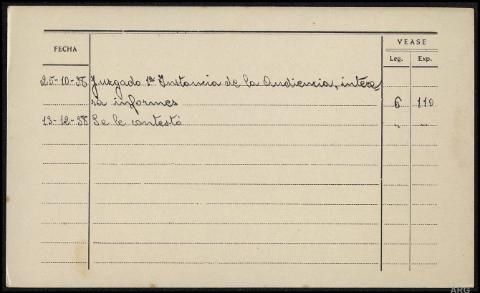 VEASE
FECHA
Leg. Exp.
25-10-38 Juzgado 1ª Instancia de la Audiencia, intere-
sa informes 6 110
13-12-38 Se le contestó " "
ARG